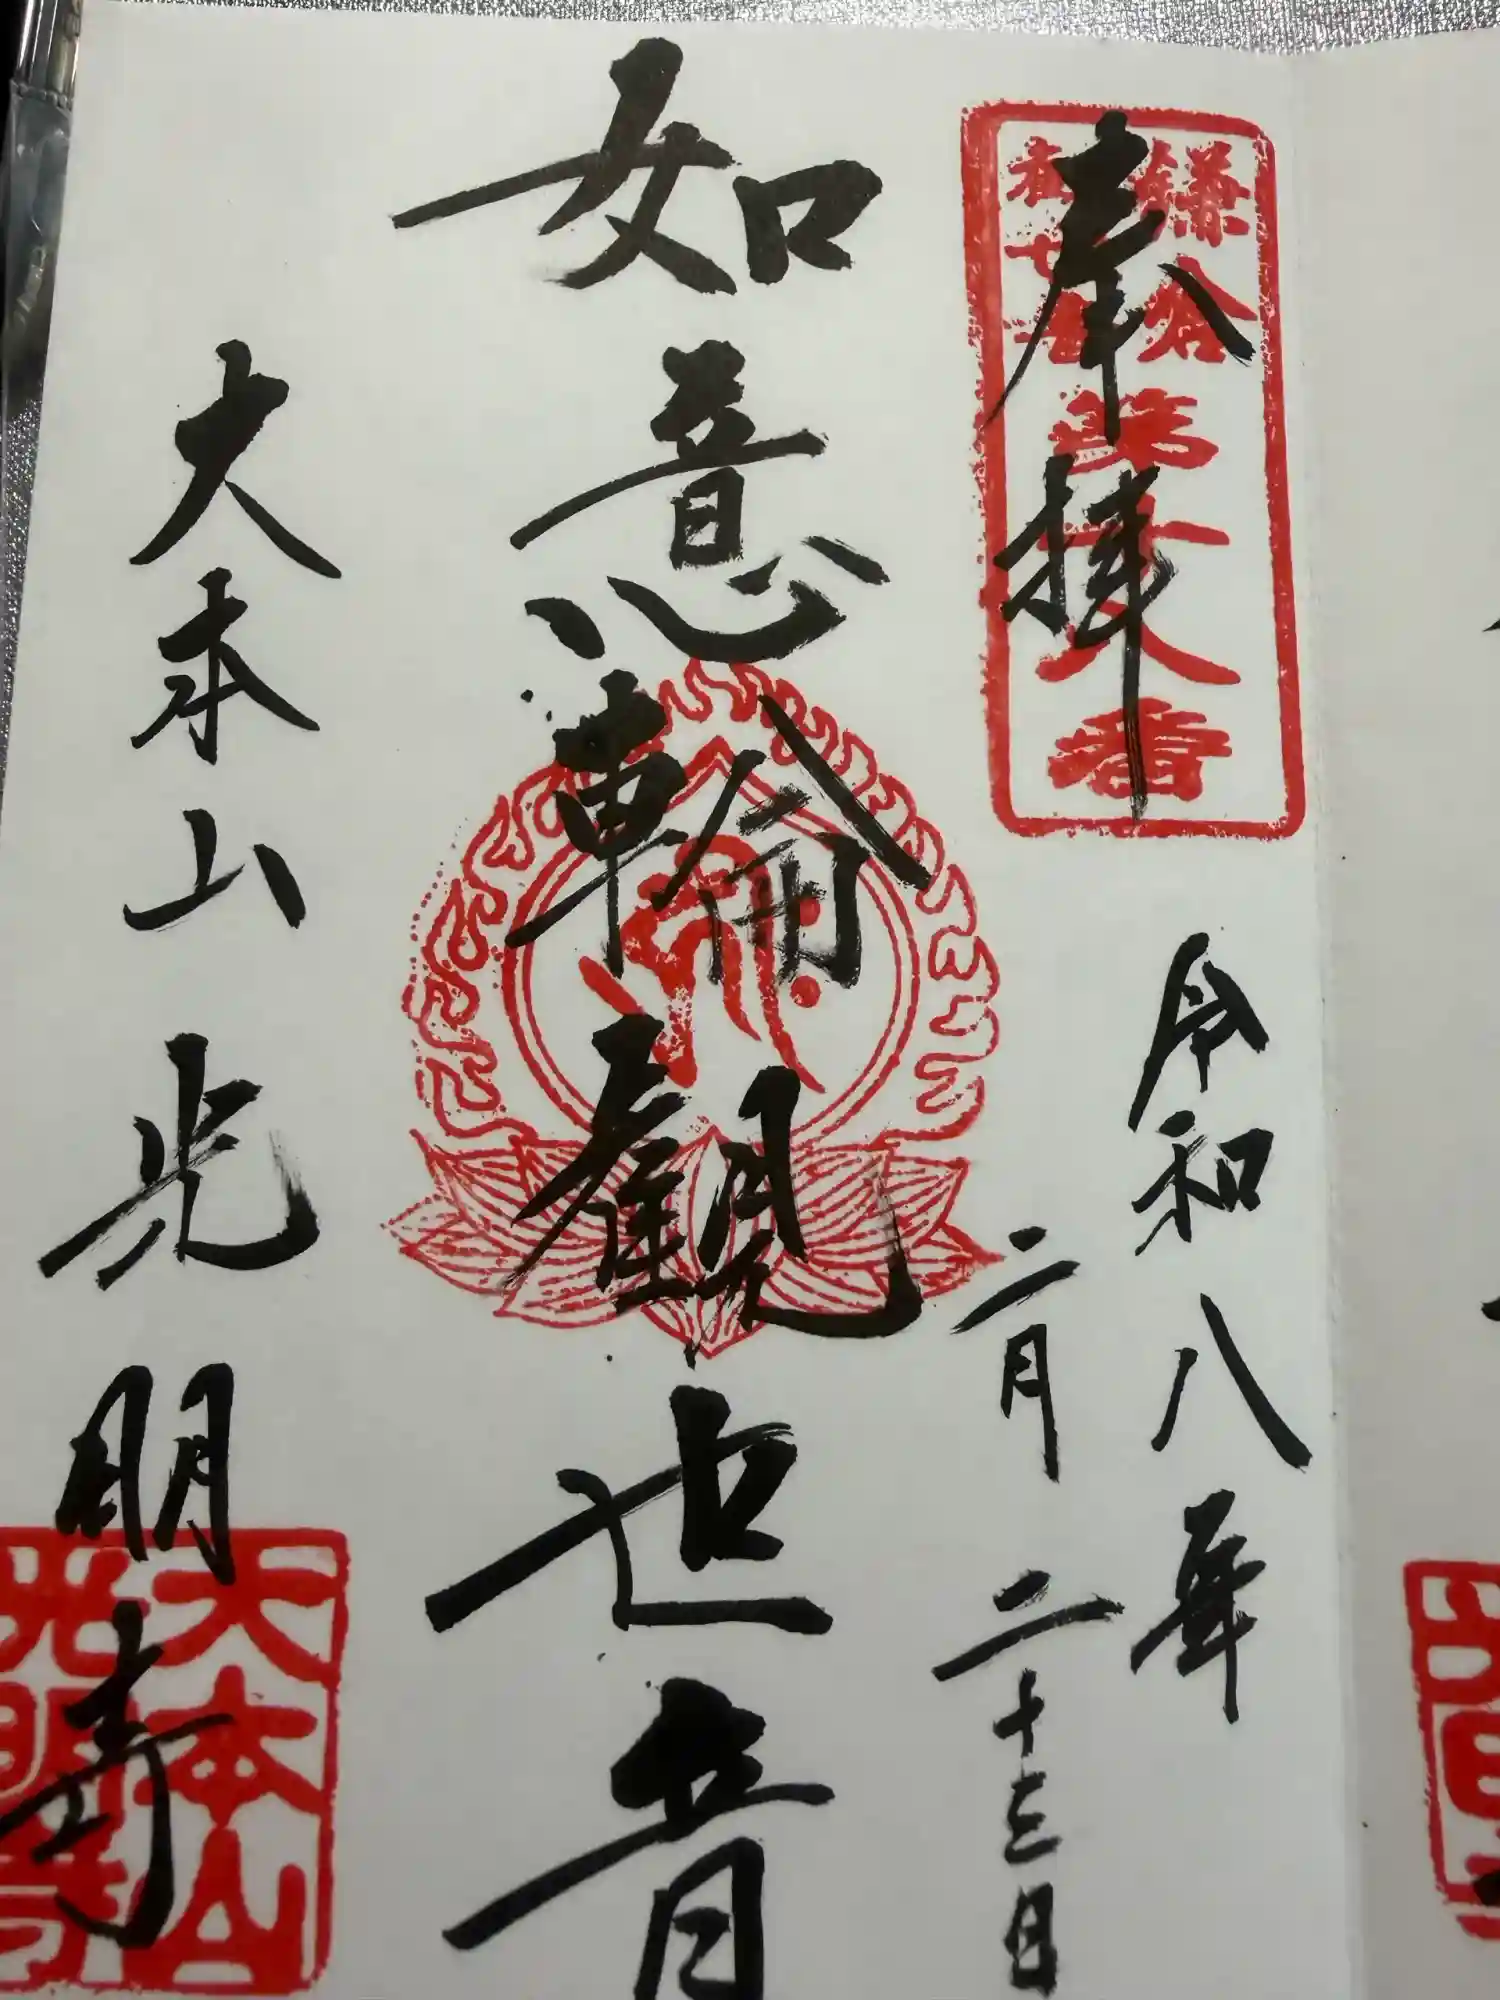 鎌倉
第十八番
奉拝
令和八年
二月二十三日
如意輪観世音
大本山光明寺
大本山
光明寺